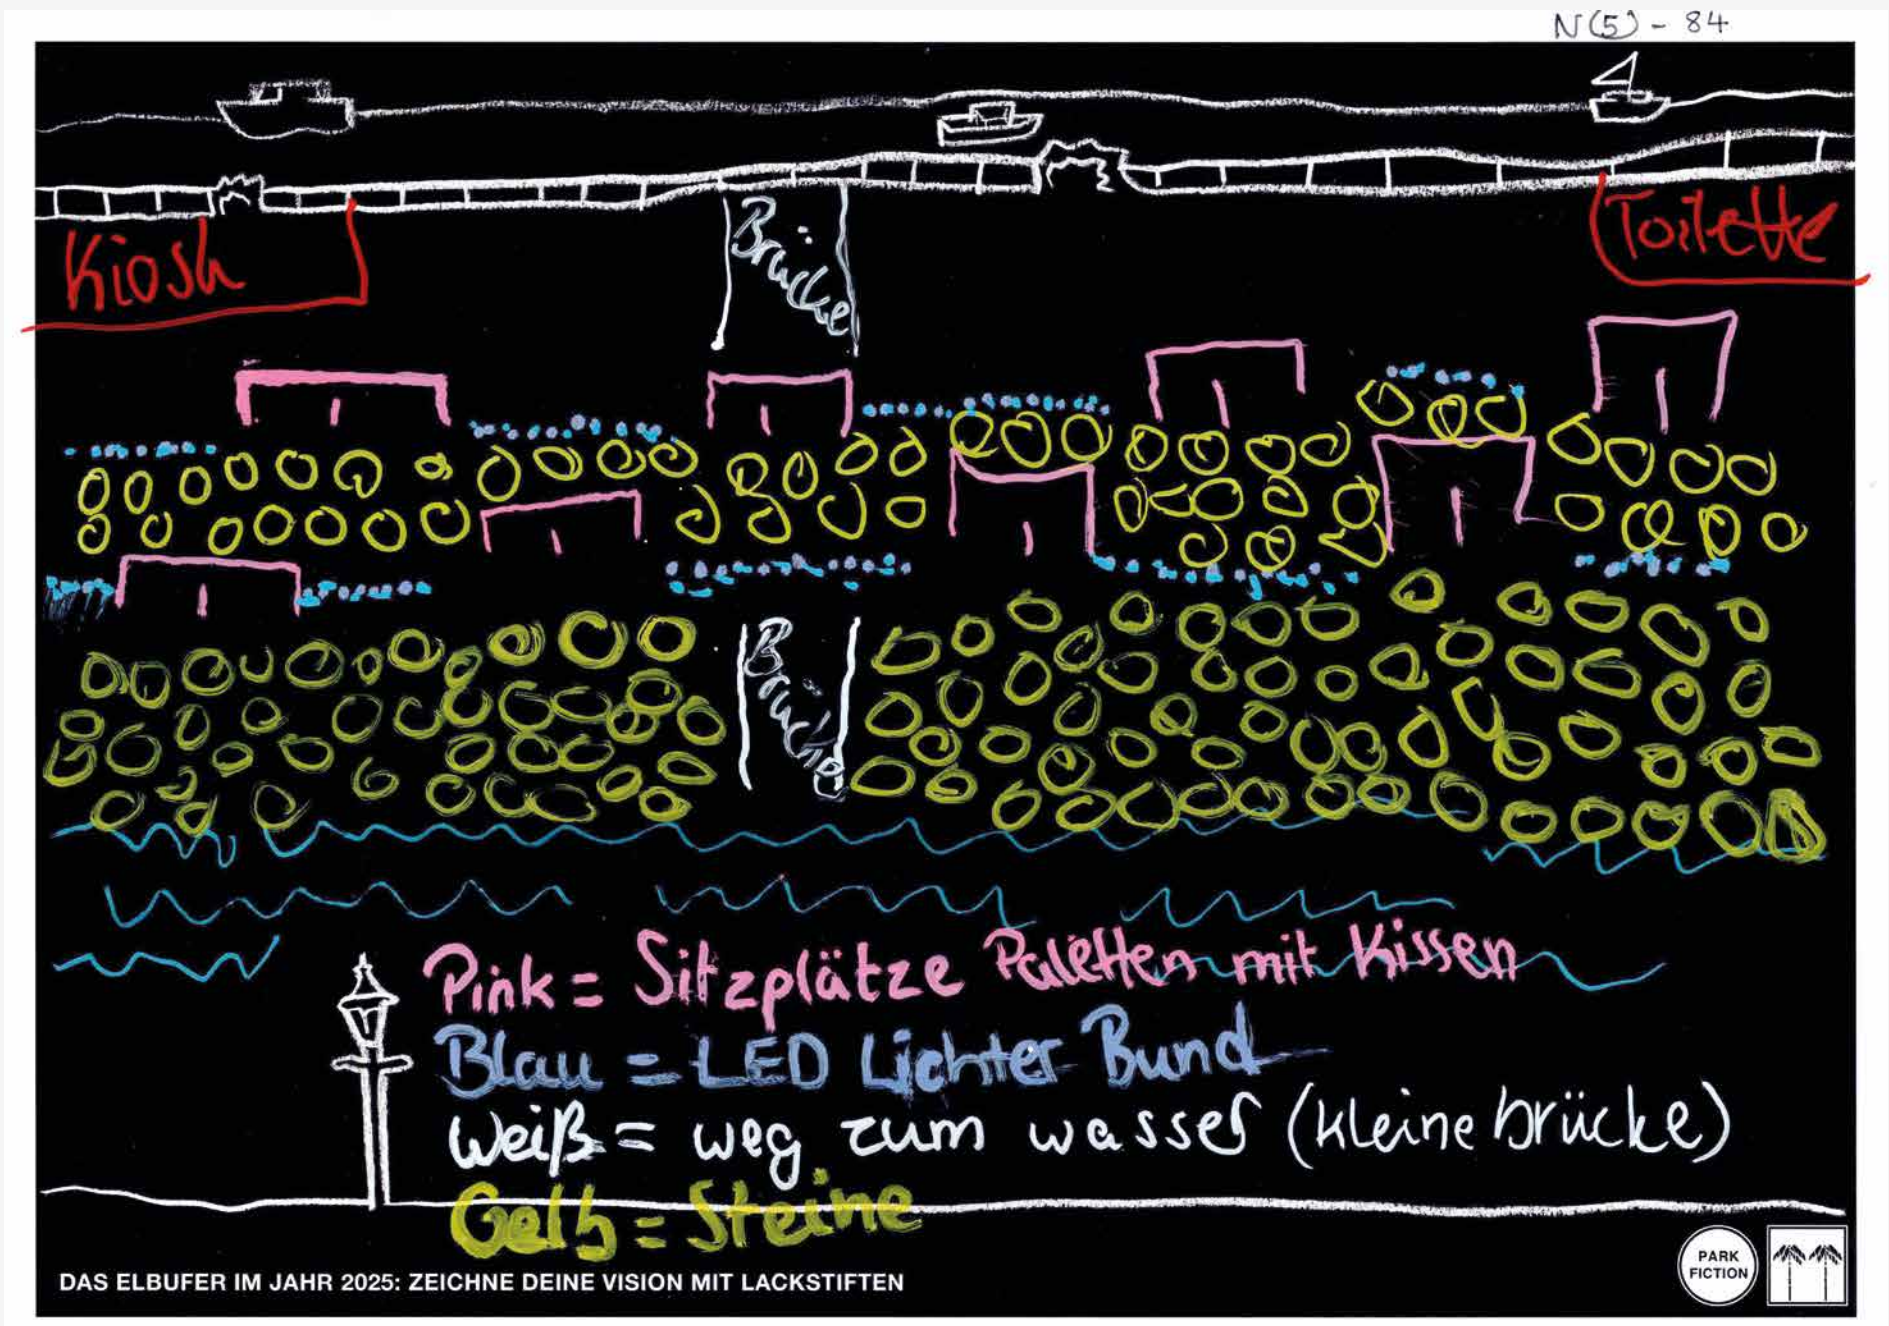 N(5) - 84
Kiosk
Brücke
Toilette
Brücke
Pink = Sitzplätze Paletten mit Kissen
Blau = LED Lichter Bund
Weiß = weg zum wasser (kleine brücke)
Gelb = Steine
PARK
FICTION
DAS ELBUFER IM JAHR 2025: ZEICHNE DEINE VISION MIT LACKSTIFTEN